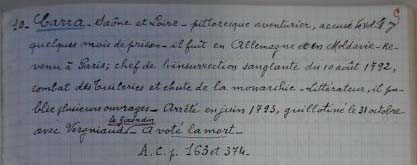 30.- Carra - Saône et Loire - pittoresque aventurier, accusé de vol. 
quelques mois de prison - il fuit en Allemagne et en Moldavie - Re-
venu à Paris; chef de l'insurrection sanglante du 10 août 1792,
combat des Tuileries et chute de la monarchie - Littérateur, il pu-
blie plusieurs ouvrages - Arrêté en juin 1793, guillotiné le 31 octobre
le girondin
avec Vergniaud - A voté la mort -
A.C. p. 163 et 374.-